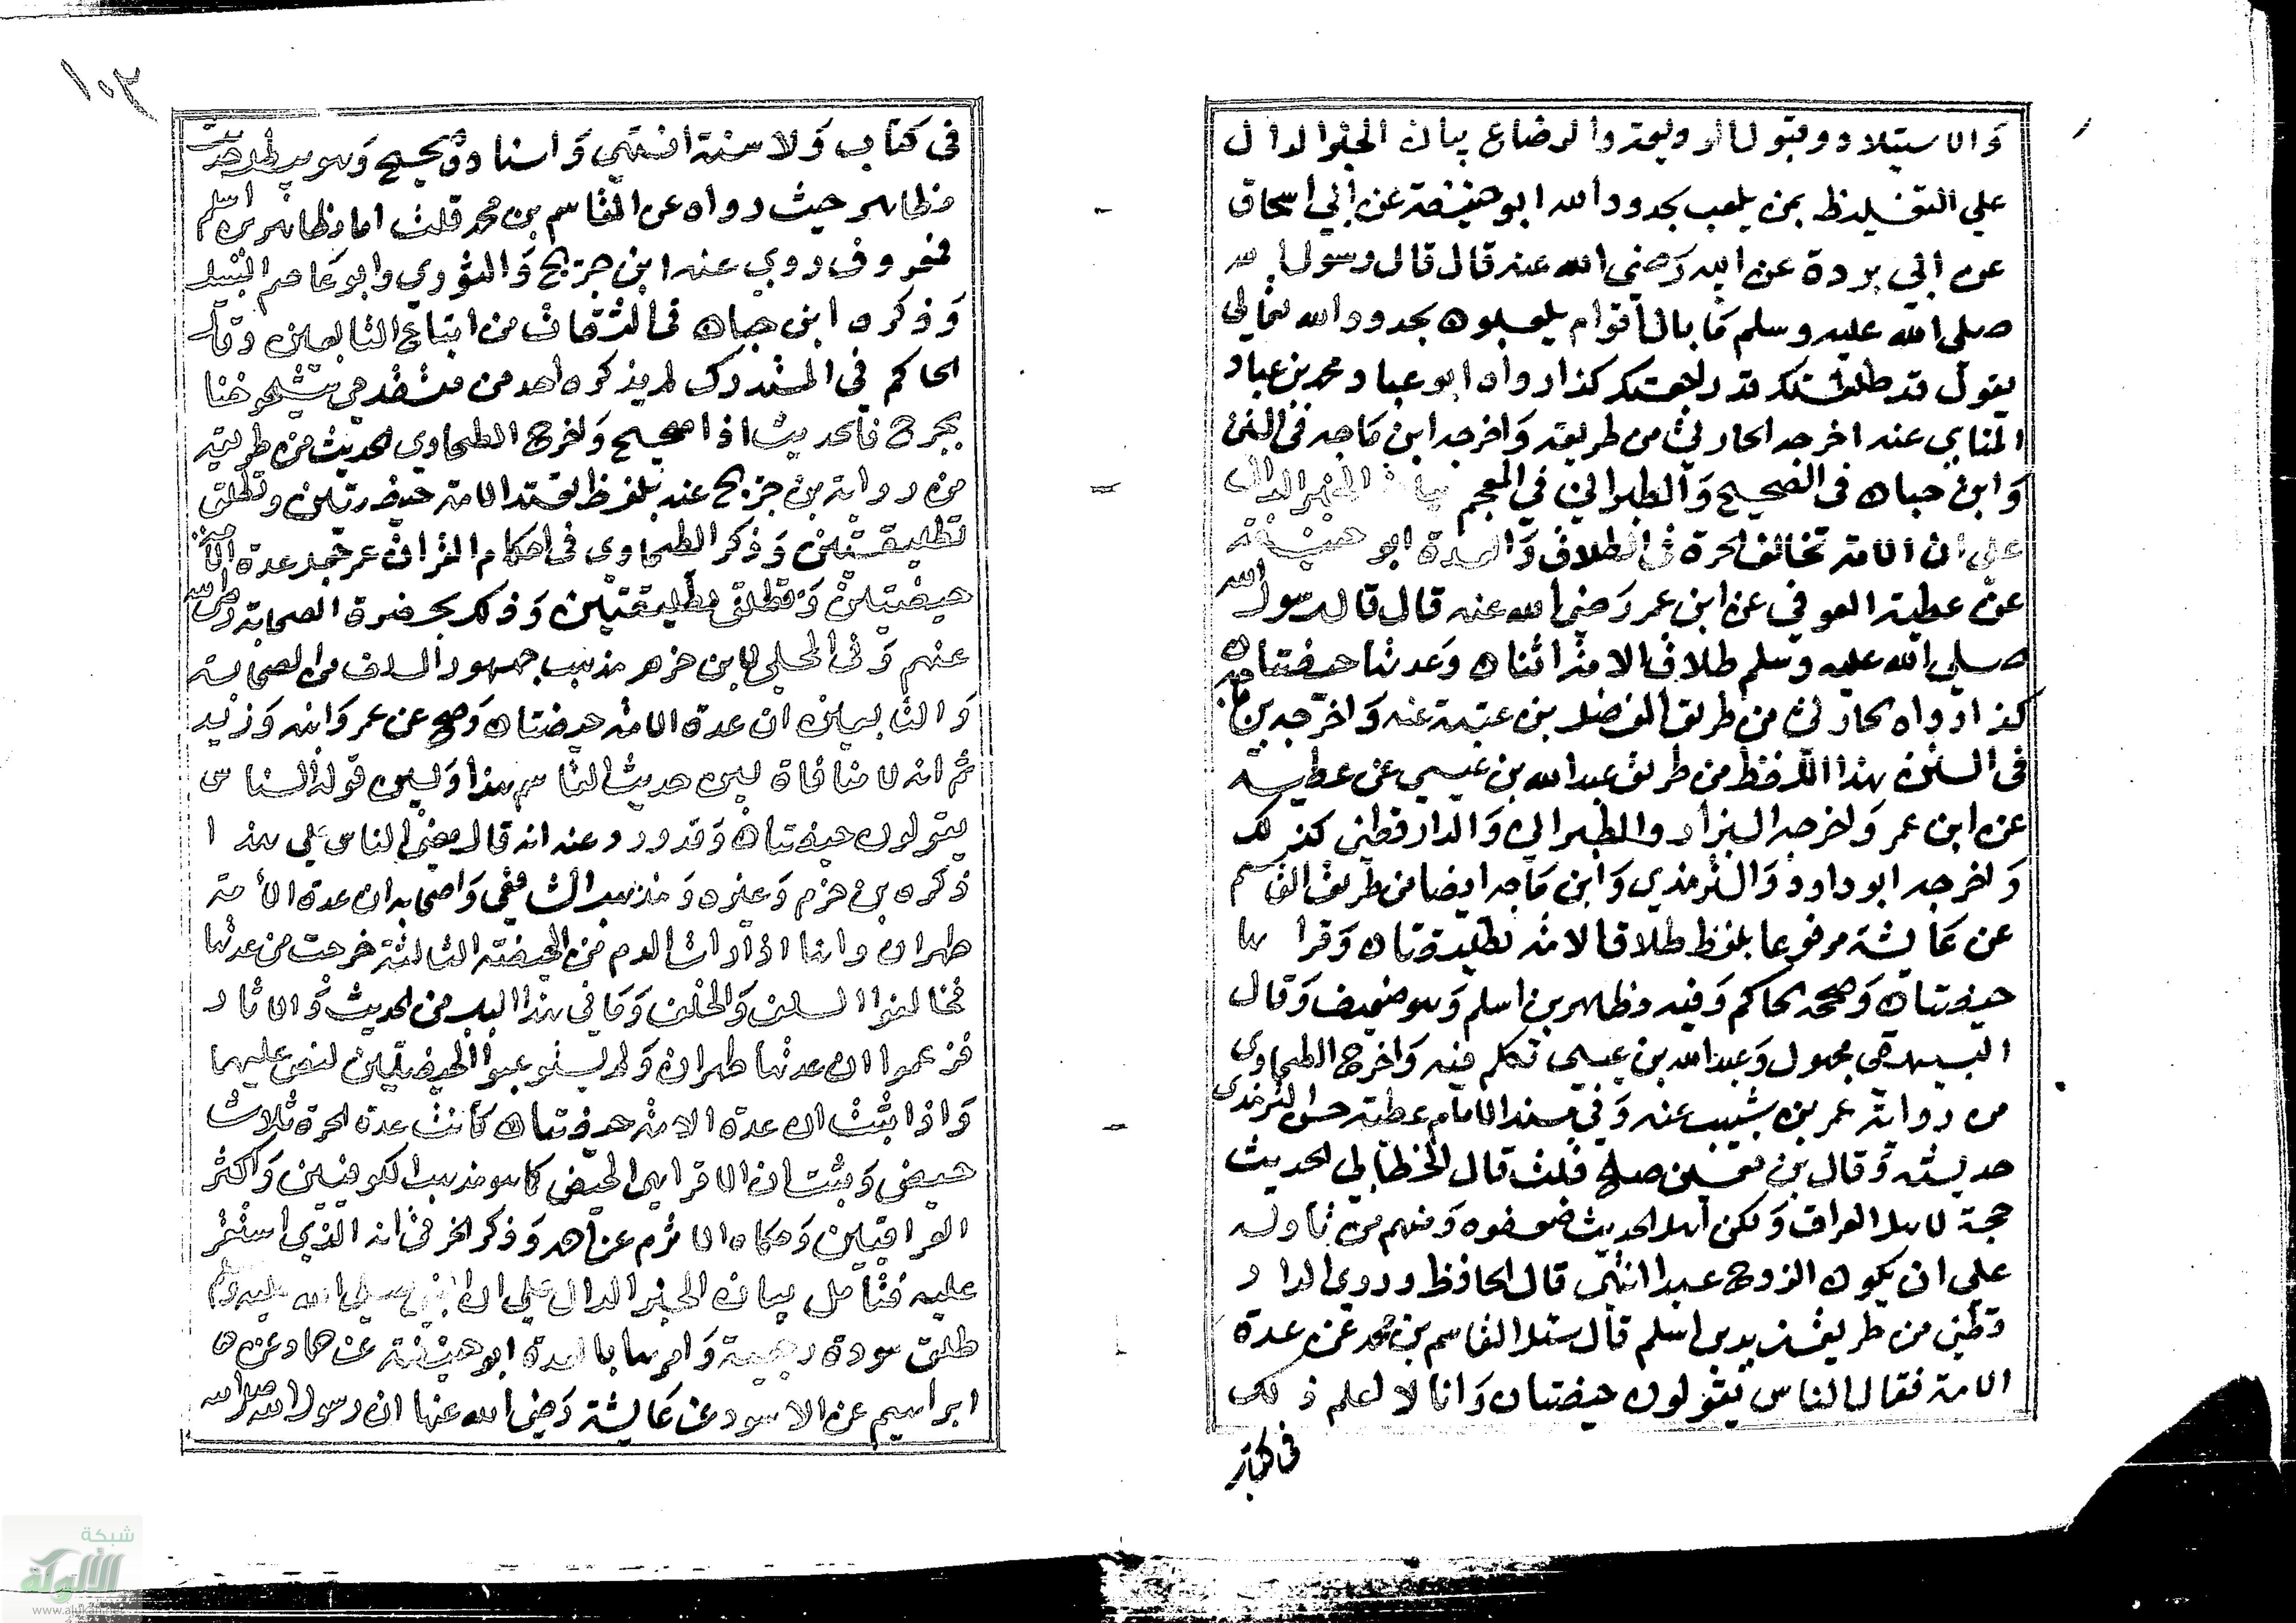 والاستيلاد وقبول الرد ويعد والرضاع بيان الخبر الدال
علي التغليظ بمن يلعب بحدود الله ابو حنيفة عن أبي اسحاق
عن ابي بردة عن ابيه رضي الله عنه قال قال رسول الله
صلي الله عليه وسلم ما بال أقوام يلعبون بحدود الله تعالي
يقول قد طلقتك قد راجعتك كذا رواه ابو عباد محمد بن عباد
الهنايي عنه اخرجه الحارثي من طريقه واخرجه ابن ماجه في السنن
وابن حبان في الصحيح والطبراني في المعجم بيان الخبر الدال
علي ان الامة تخالف الحرة في الطلاق والعدة ابو حنيفة
عن عطية العوفي عن ابن عمر رضي الله عنه قال قال رسول الله
صلي الله عليه وسلم طلاق الامة اثنان وعدتها حيضتان
كذا رواه الحارثي من طريق الفضل بن عتبة عنه واخرجه بن ماجه
في السنن بهذا اللفظ من طريق عبد الله بن عيسي عن عطية
عن ابن عمر واخرجه البزار والطبراني والدارقطني كذلك
واخرجه ابو داود والترمذي وابن ماجه ايضا من طريق القاسم
عن عايشة مرفوعا بلفظ طلاق الامة تطليقتان وقراها
حيضتان وصححه الحاكم وفيه مظاهر بن اسلم وهو ضعيف وقال
البيهقي مجهول وعبد الله بن عيسي تكلم فيه واخرج الطحاوي
من رواية عمر بن شبيب عنه وفي مسند الامام عطية حسن الترمذي
حديثه وقال بن معين صالح قلت قال الخطابي الحديث
حجة لاهل العراق ولكن أهل الحديث ضعفوه ومنهم من تاوله
علي ان يكون الزوج عبدا انتهي قال الحافظ وروي الدار
قطني من طريق زيد بن اسلم قال سئل القاسم بن محمد عن عدة
الامة فقال الناس يقولون حيضتان وانا لا نعلم ذلك
في كتاب
١٠٣
في كتاب ولا سنة انتهي واسناده صحيح وهو يبطل حديث
مظاهر حيث رواه عن القاسم بن محمد قلت اما مظاهر بن اسلم
فمعروف روي عنه ابن جريج والثوري وابو عاصم النبيل
وذكره ابن حبان في الثقات من اتباع التابعين وقال
الحاكم في المستدرك لم يذكره أحد من متقدمي شيوخنا
بجرح فالحديث اذا صحيح واخرج الطحاوي الحديث من طريقه
من رواية بن جريج عنه بلفظ تعتد الامة حيضتين وتطلق
تطليقتين وذكر الطحاوي في احكام القران عن عمر عدة الأمة
حيضتين وتطلق تطليقتين وذلك بحضرة الصحابة رضي الله
عنهم وفي المحلي لابن حزم مذهب جمهور السلف من الصحابة
والتابعين ان عدة الامة حيضتان وصح عن عمر وابنه وزيد
ثم انه لا منافاة بين حديث القاسم هذا وبين قوله الناس
يقولون حيضتان وقد ورد عنه انه قال مضي الناس علي هذا
ذكره بن حزم وغيره ومذهب الشافعي واصحابه ان عدة الأمة
طهران وانها اذا رات الدم من الحيضة الثالثة خرجت من عدتها
فخالفوا السلف والخلف وما في هذا الباب من الحديث والاثار
فزعموا ان عدتها طهران ولم يستوعبوا الحيضتين لنص عليهما
واذا ثبت ان عدة الامة حيضتان كانت عدة الحرة ثلاث
حيض وثبت ان الاقرا هي الحيض كما هو مذهب الكوفيين واكثر
العراقيين وحكاه الاثرم عن أحمد وذكر الخرقي انه الذي استقر
عليه فتأمل بيان الخبر الدال علي ان النبي صلي الله عليه وسلم
طلق سودة رجعية وامرها بالعدة ابو حنيفة عن حماد عن
ابراهيم عن الاسود عن عايشة رضي الله عنها ان رسول الله صلي الله
شبكة
الألوكة
www.alukah.net